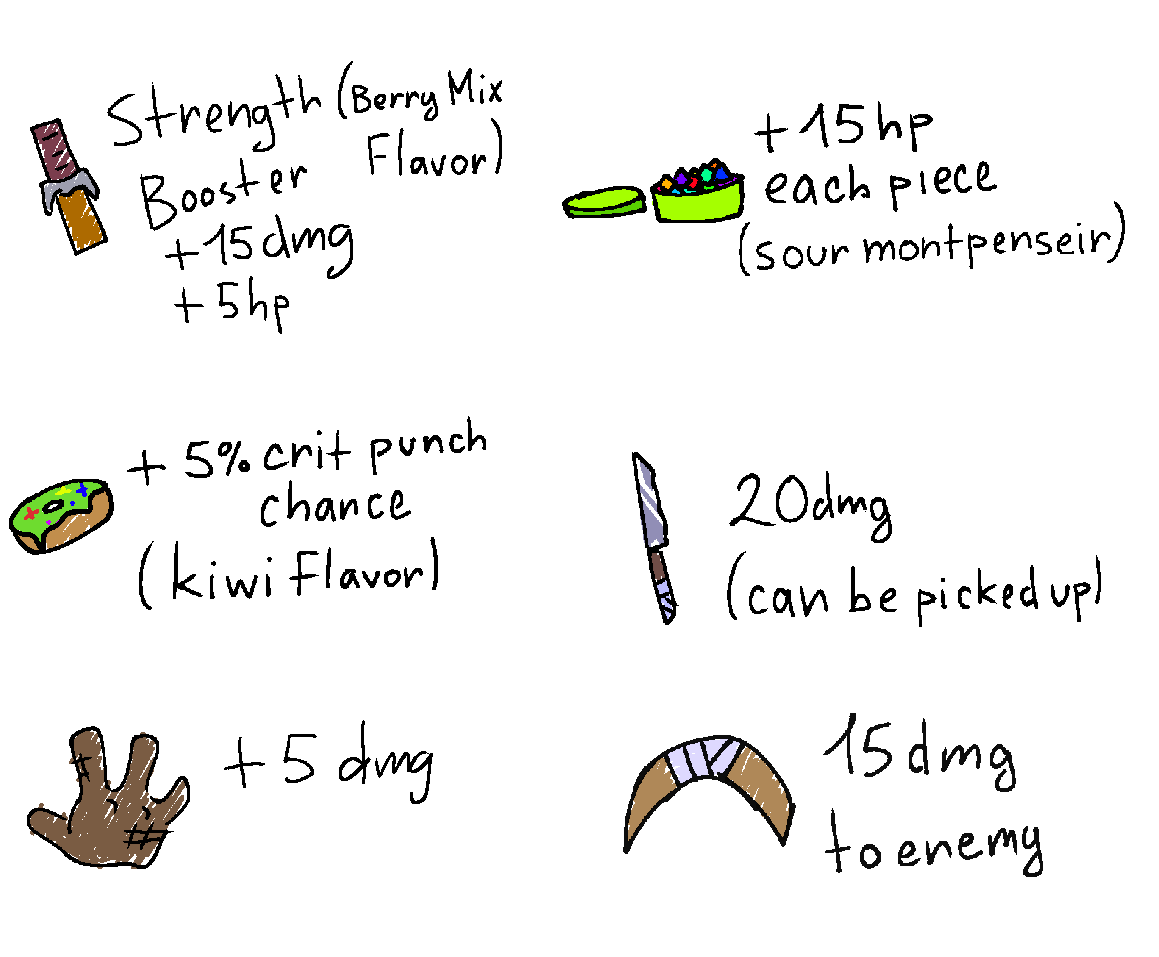 Strength (Berry Mix
Flavor)
Booster
+15dmg
+5hp
+15hp
each piece
(sour montpenseir)
+ 5% crit punch
chance
(kiwi Flavor)
20dmg
(can be picked up)
+5 dmg
15dmg
to enemy